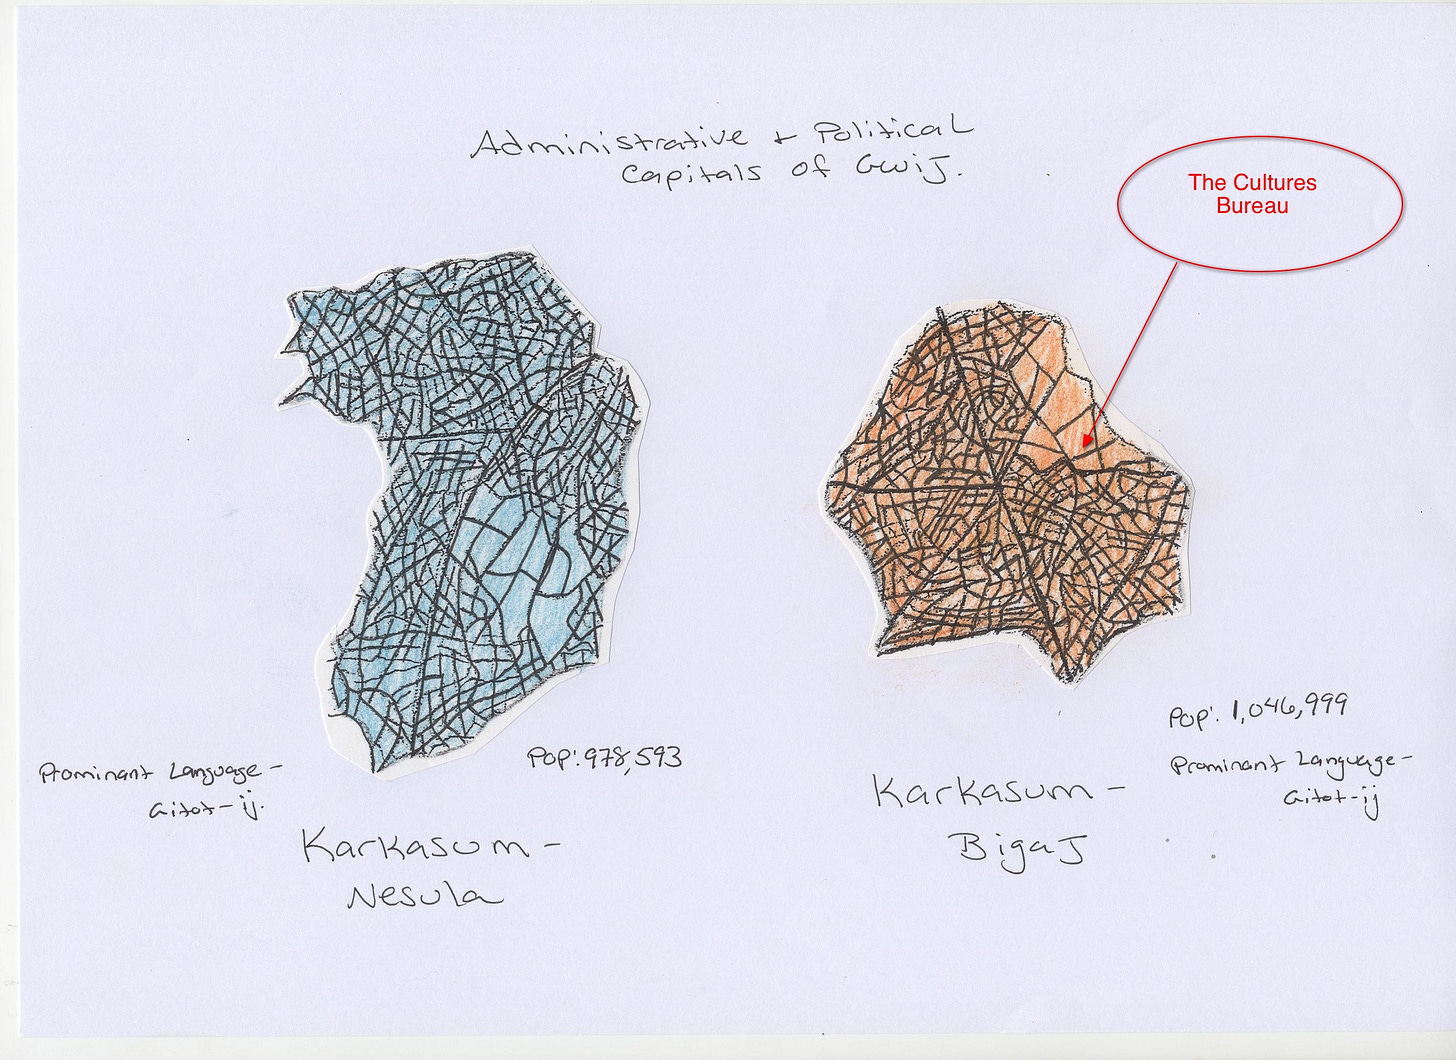 Administrative + Political
Capitals of GwiJ.
The Cultures
Bureau
Pop: 978,593
Prominant Language -
Gitot-ij.
Karkasum -
Nesula
Pop: 1,046,999
Prominant Language -
Gitot-ij
Karkasum -
BigaJ